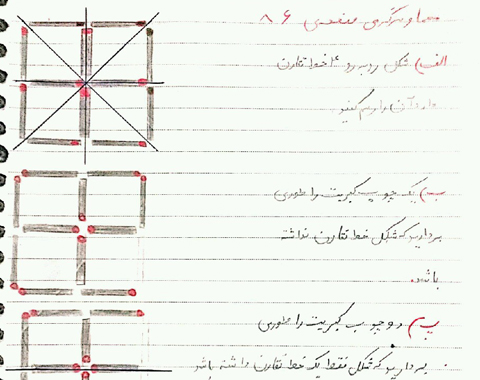 معما و سرگرمی صفحه‌ی ۸۶
الف) شکل روبه رو ۴ خط تقارن
دارد آن را رسم کنید
ب) یک چوب کبریت را طوری
بردارید که شکل خط تقارن نداشته
باشد.
پ) دو چوب کبریت را طوری
بردارید که شکل فقط یک خط تقارن داشته باشد